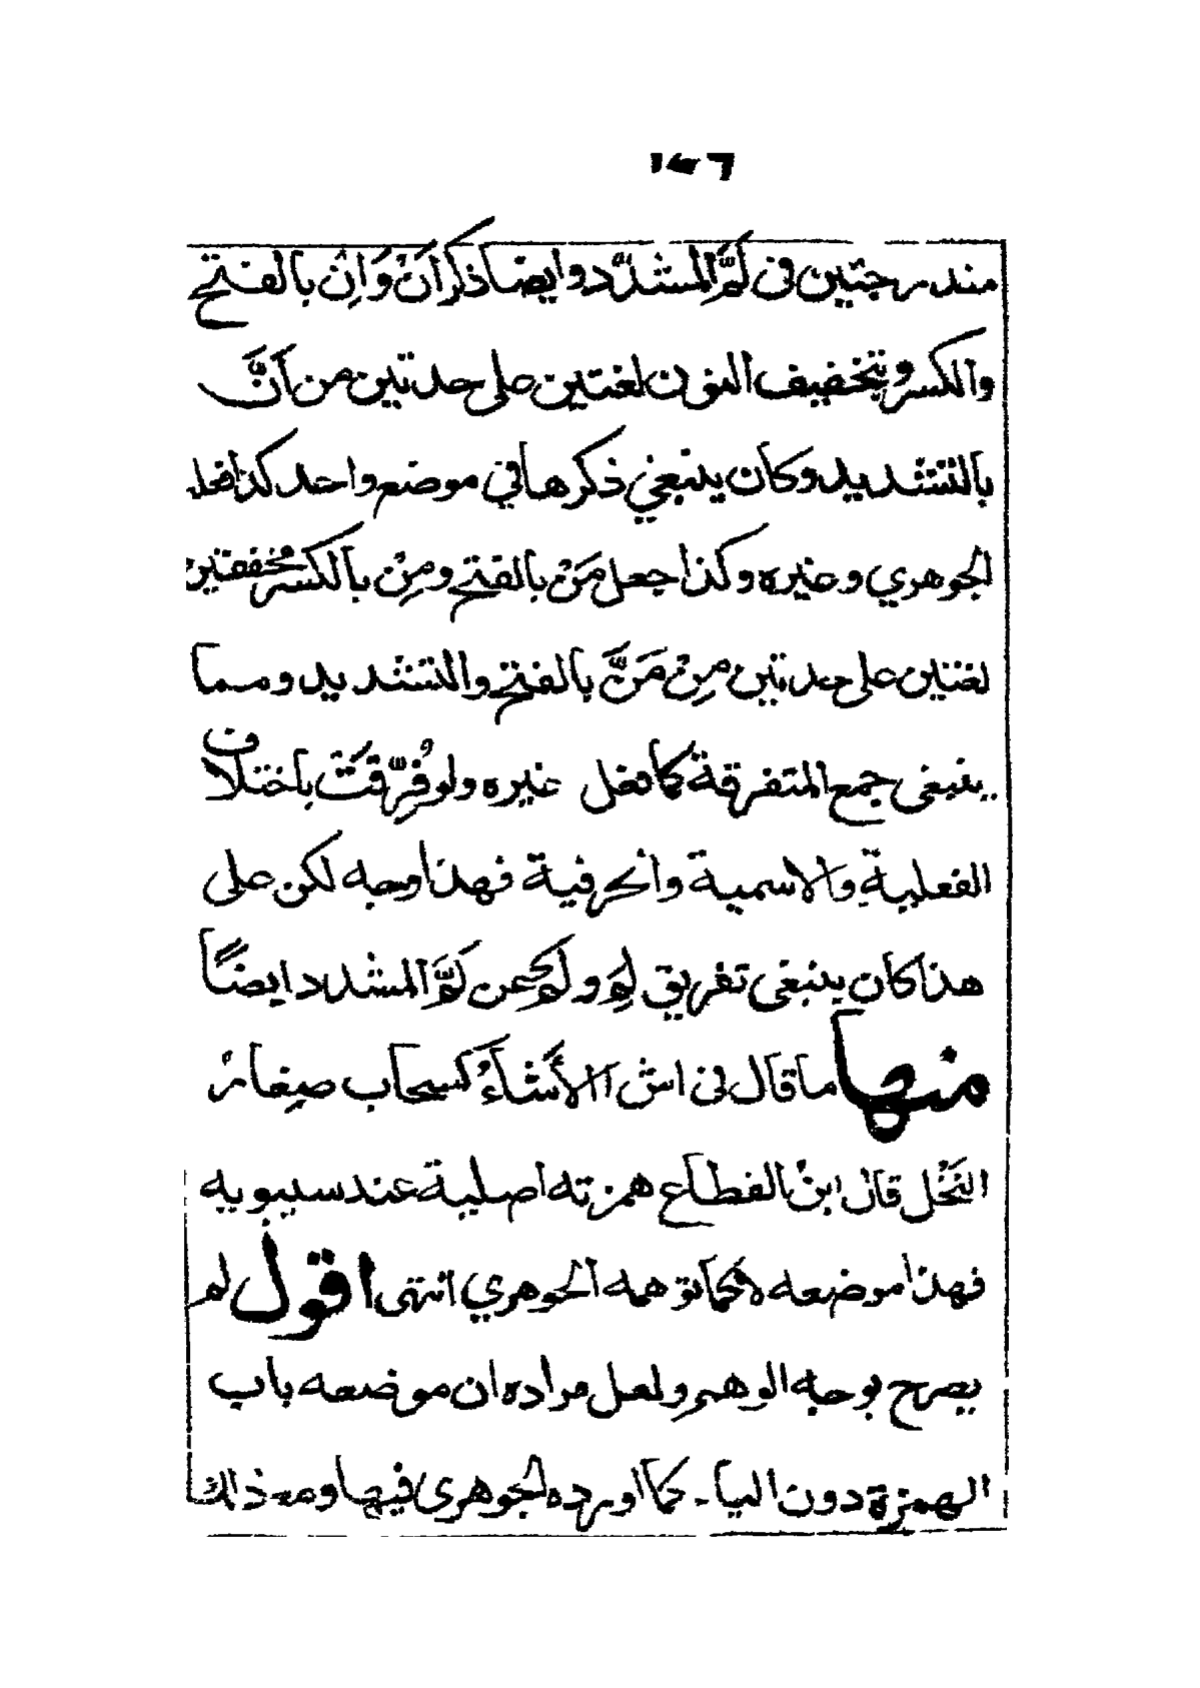 ١٣٦
مندرجتين في لَمَّ المشدّد وايضا ذكر اَنْ وَاِنْ بالفتح
والكسر وتخفيف النون لغتين على حدتين من اَنَّ
بالتشديد وكان ينبغي ذكرها في موضع واحد كذا فعل
الجوهري وغيره وكذا جعل مَنْ بالفتح ومِنْ بالكسر مخففتين
لغتين على حدتين مِنْ مَنَّ بالفتح والتشديد ومما
ينبغى جمع المتفرقة كما فعل غيره ولو فُرِّقَتْ باختلاف
الفعلية والاسمية والحرفية فهذا وجه لكن على
هذا كان ينبغى تفريق لِمَ ولَمْ عن لَمَّ المشدد ايضًا
منها ما قال في اش ا الأَشَاءُ كسحاب صغار
النَخْل قال ابنُ القطاع همزته اصلية عند سيبويه
فهذا موضعه لا كما توهمه الجوهري انتهى اقول لم
يصرح بوجه الوهم ولعل مراده ان موضعه باب
الهمزة دون اليا۔ كما اورده الجوهرى فيها ومع ذلك